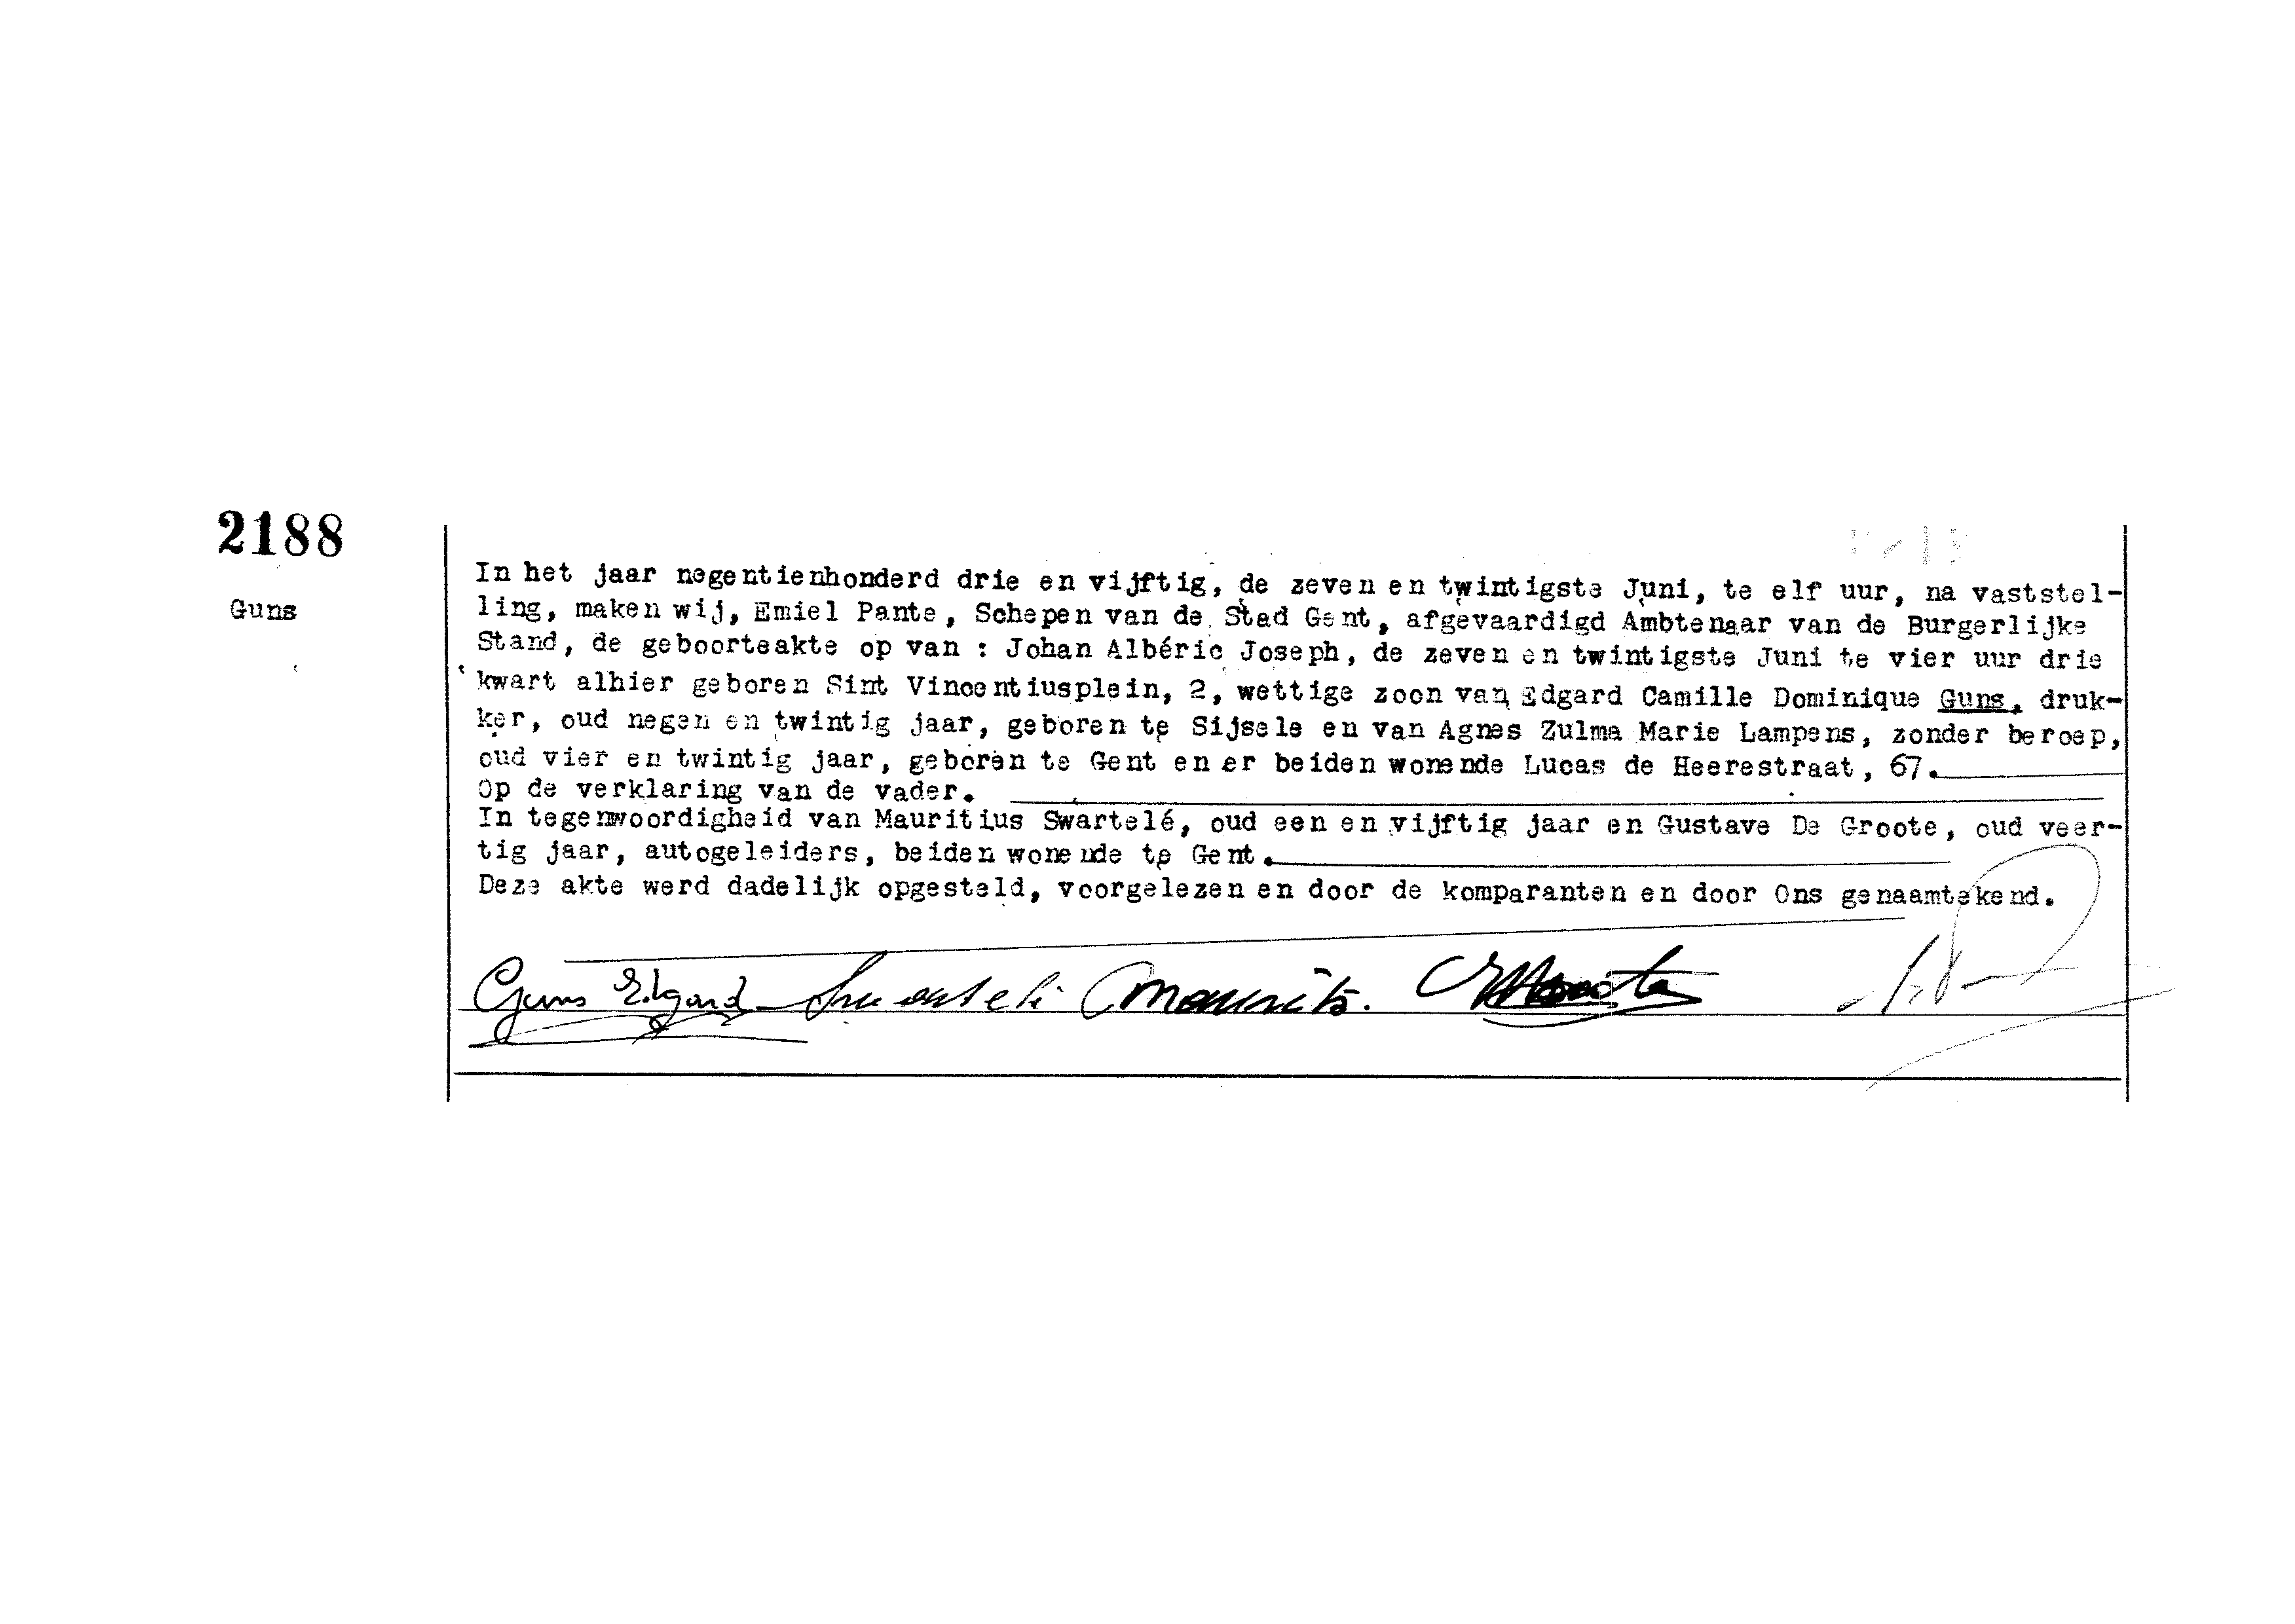 2188
Guns
In het jaar negentienhonderd drie en vijftig, de zeven en twintigste Juni, te elf uur, na vaststel-
ling, maken wij, Emiel Pante, Schepen van de Stad Gent, afgevaardigd Ambtenaar van de Burgerlijke
Stand, de geboorteakte op van : Johan Albéric Joseph, de zeven en twintigste Juni te vier uur drie
kwart alhier geboren Sint Vincentiusplein, 2, wettige zoon van Edgard Camille Dominique Guns, druk-
ker, oud negen en twintig jaar, geboren te Sijsele en van Agnes Zulma Marie Lampens, zonder beroep,
oud vier en twintig jaar, geboren te Gent en er beiden wonende Lucas de Heerestraat, 67.
Op de verklaring van de vader.
In tegenwoordigheid van Mauritius Swartelé, oud een en vijftig jaar en Gustave De Groote, oud veer-
tig jaar, autogeleiders, beiden wonende te Gent.
Deze akte werd dadelijk opgesteld, voorgelezen en door de komparanten en door Ons genaamtekend.
Guns Edgard Swartelé Maurits.